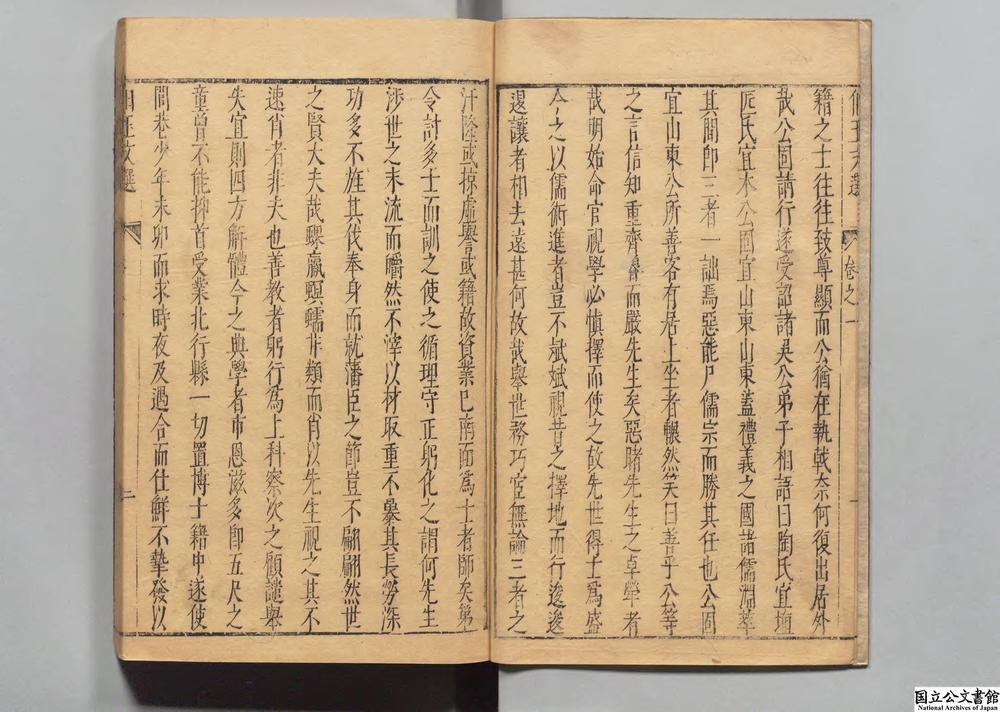 卷之一
籍之士往往致尊顯而公猶在執戟奈何復出居外
哉公固請行遂受詔諸吳公弟子相語曰陶氏宜埴
匠氏宜木公固宜山東山東蓋禮義之國諸儒淵萃
其間即三者一詘焉惡能尸儒宗而勝其任也公固
宜山東公所善客有居上坐者囅然笑曰善乎公等
之言信知重齊魯而嚴先生矣惡睹先生之卓犖者
哉明始命官視學必慎擇而使之故先世得士爲盛
今之以儒術進者豈不斌斌視昔之擇地而行逡逡
退讓者相去遠甚何故哉舉世務巧宦無論三者之
汙隆或掠虛譽或籍故資業已南面爲士者師矣第
令討多士而訓之使之循理守正躬化之謂何先生
涉世之末流而皭然不滓以材取重不暴其長勞深
功多不旌其伐奉身而就藩臣之節豈不翩翩然世
之賢大夫哉螺蠃螟蠕非類而肖以先生視之其不
速肖者非夫也善教者躬行爲上科察次之顧譴舉
失宜則四方解體今之典學者市恩滋多即五尺之
童曾不能抑首受業北行縣一切置博士籍中遂使
閭巷少年未卯而求時夜及遇合而仕鮮不摯發以
二
国立公文書館
National Archives of Japan